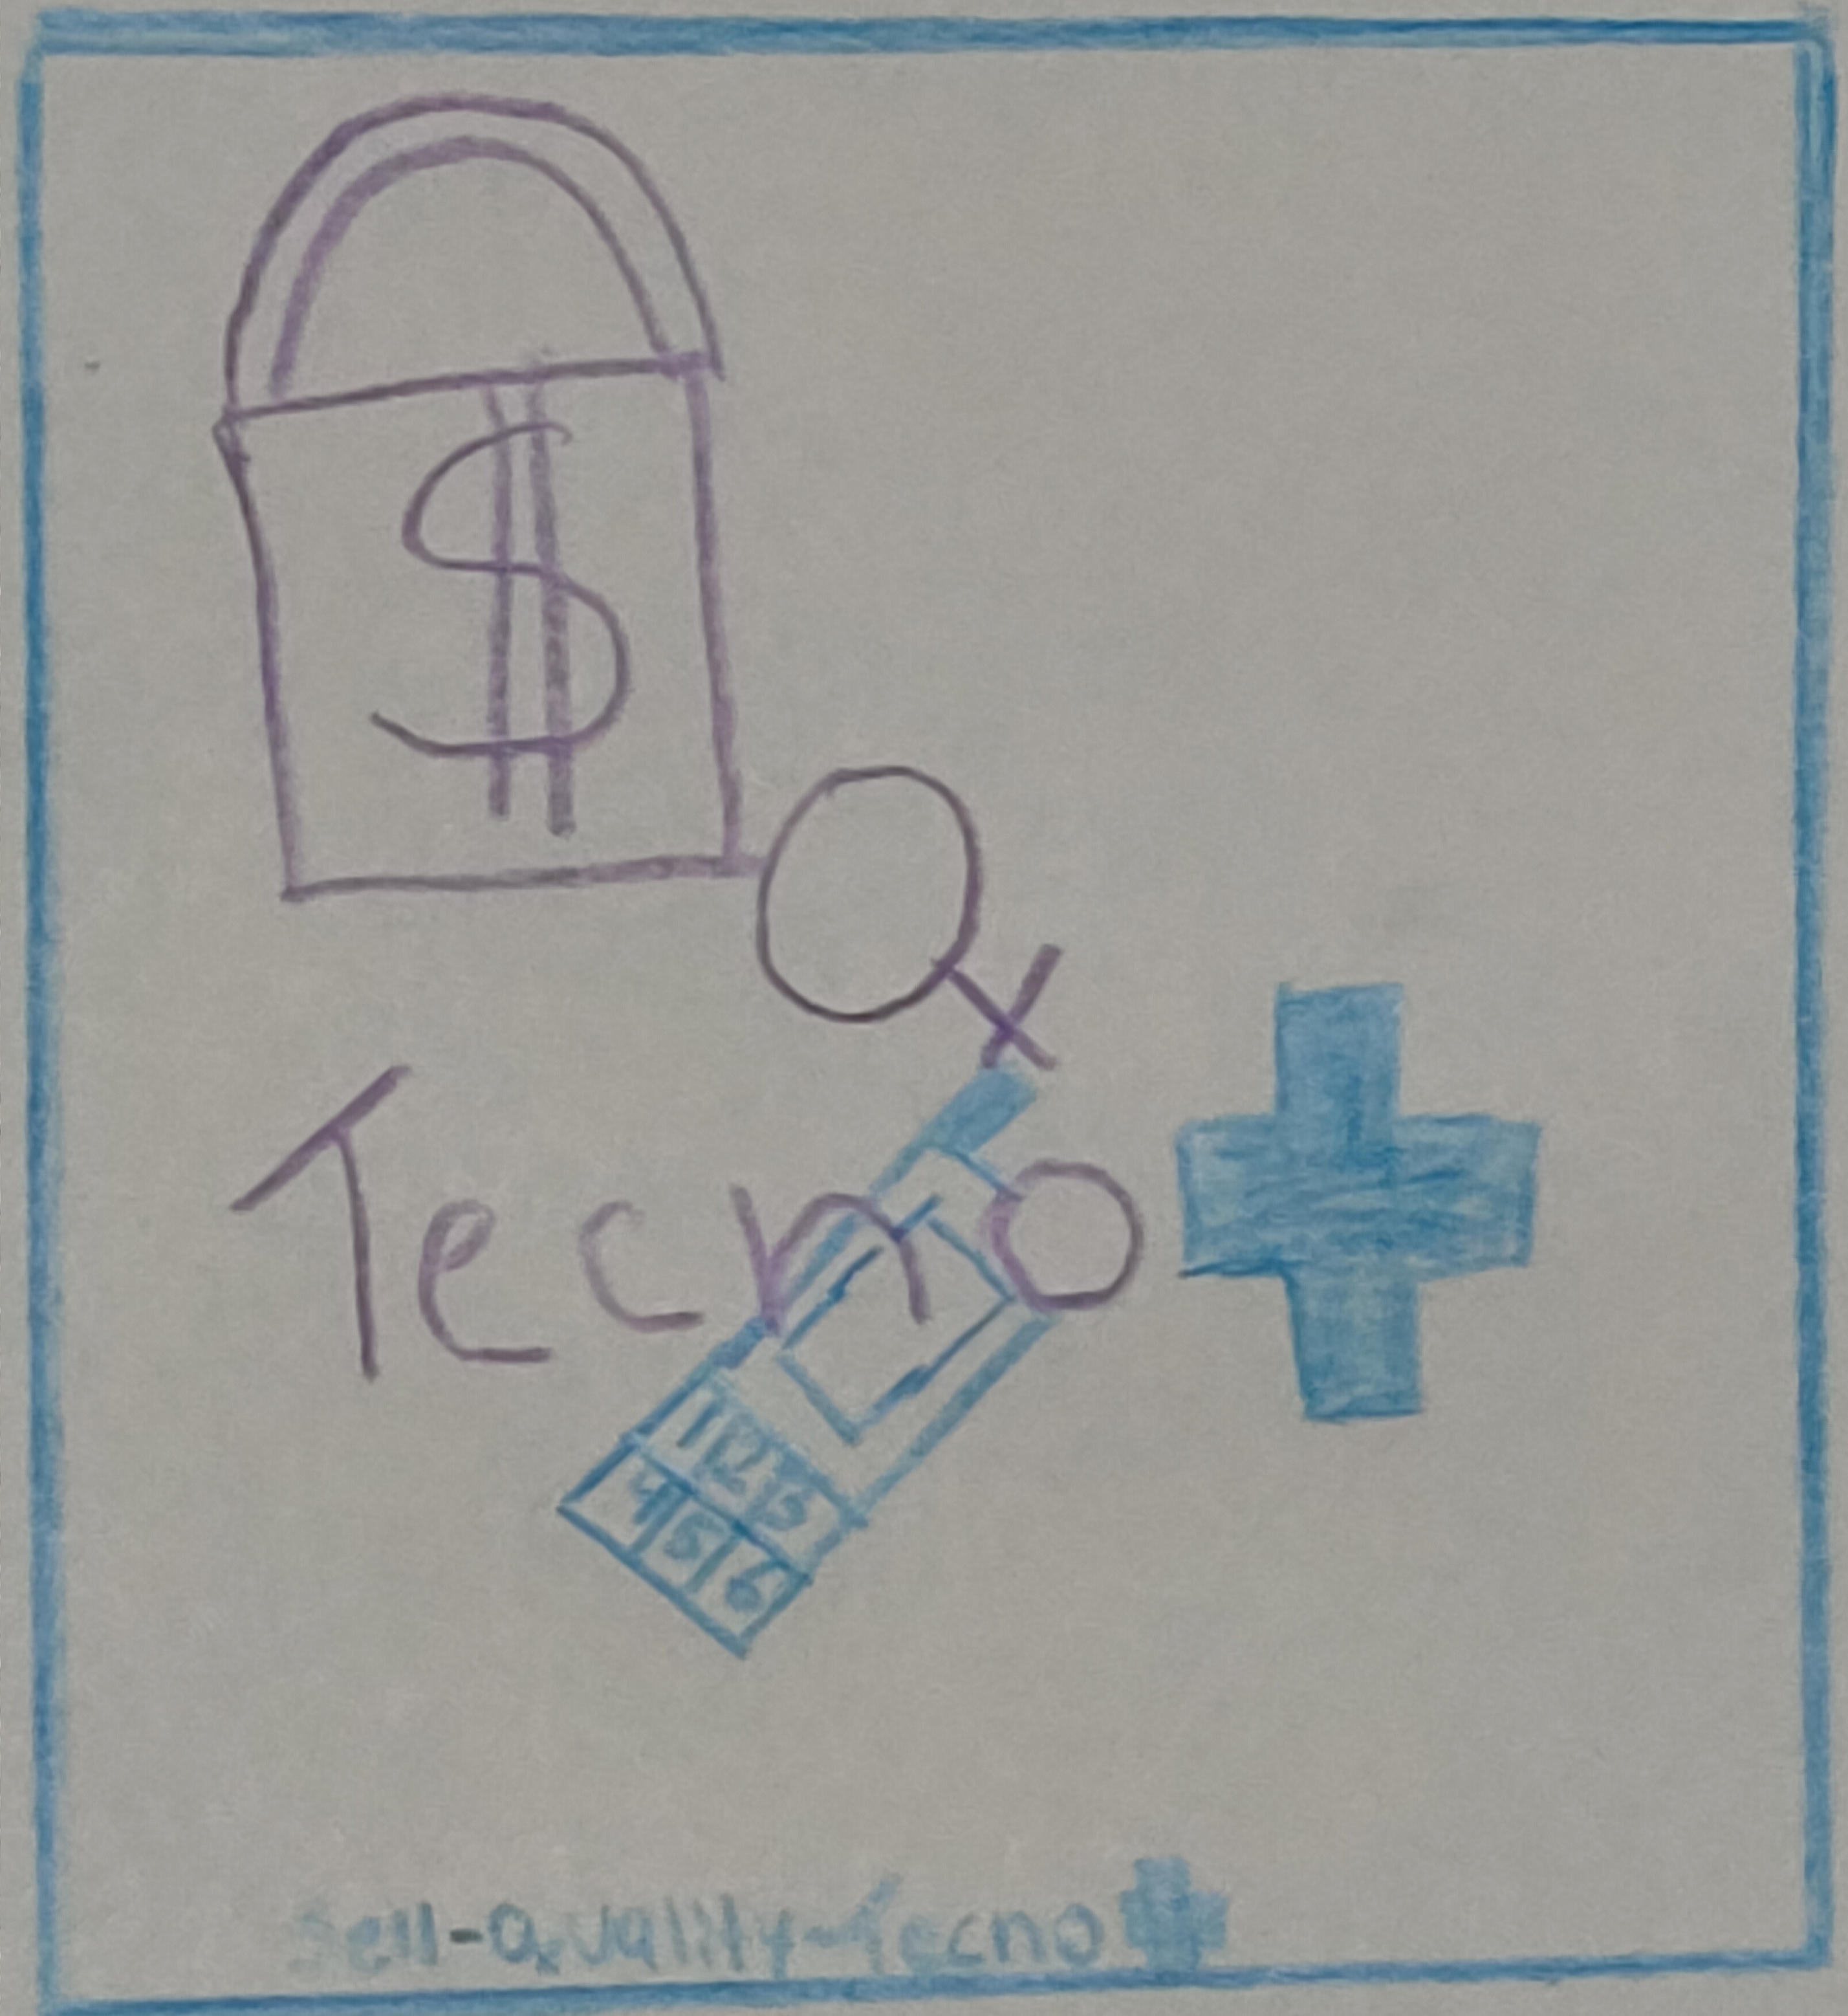 $
Q
Tecno
1 2 3
4 5 6
Sell-Quality-Tecno